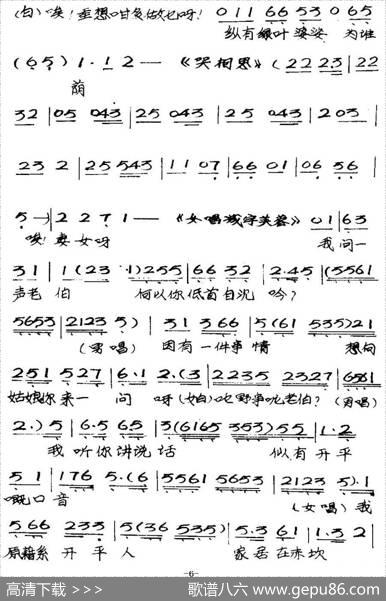 (白)唉！ 0 1 1 6 6 5 3 0 6 5
纵有绿叶婆娑 为谁
(6 5) 1·1 2 — 《哭相思》(2 2 2 3 | 2 2
荫
3 2 | 0 5 0 4 3 | 2 5 0 4 3 | 2 5 0 4 3 | 2 0 3 |
2 3 2 | 2 5 5 4 3 | 1 1 0 7 | 6 6 0 1 | 0 6 5 6 |
5 —) | 2 2 7 1 — 《女唱减字芙蓉》 0 1 | 6 3
唉！妻女呀 我问一
3 1 | 1 (2 3 1) 2 5 5 | 6 6 3 2 | 2·4 5 | (5 5 6 1
声老 伯 何以你低首自沉 吟？
5 6 5 3 | 2 1 2 3 5) | 3 1 3 6 6 | 5 (6 1 5 3 5) 2 1
(男唱) 因有一件事 情 想向
2 5 1 5 2 7 | 6·1 2·(3 | 2 2 3 5 2 3 2 7 | 6 5 6 1
姑娘你来一 问 呀(女白)吔野事呢老伯？(男唱)
2·) 5 | 6·5 6 5 | 3 (6 1 6 5 3 5 3) 5 5 | 1·2
我 听你讲说 话 似有开平
5 1 | 1 7 6 5·(6 | 5 5 6 1 5 6 5 3 | 2 1 2 3 5)·1
嘅口 音 (女唱)我
5 6 6 2 3 3 | 5 (3 6 5 3 5) | 5·3 6 1 | 1·3 2
原籍系 开平 人 家居在赤坎
-6-
高清下载 >>> 歌谱八六 www.gepu86.com